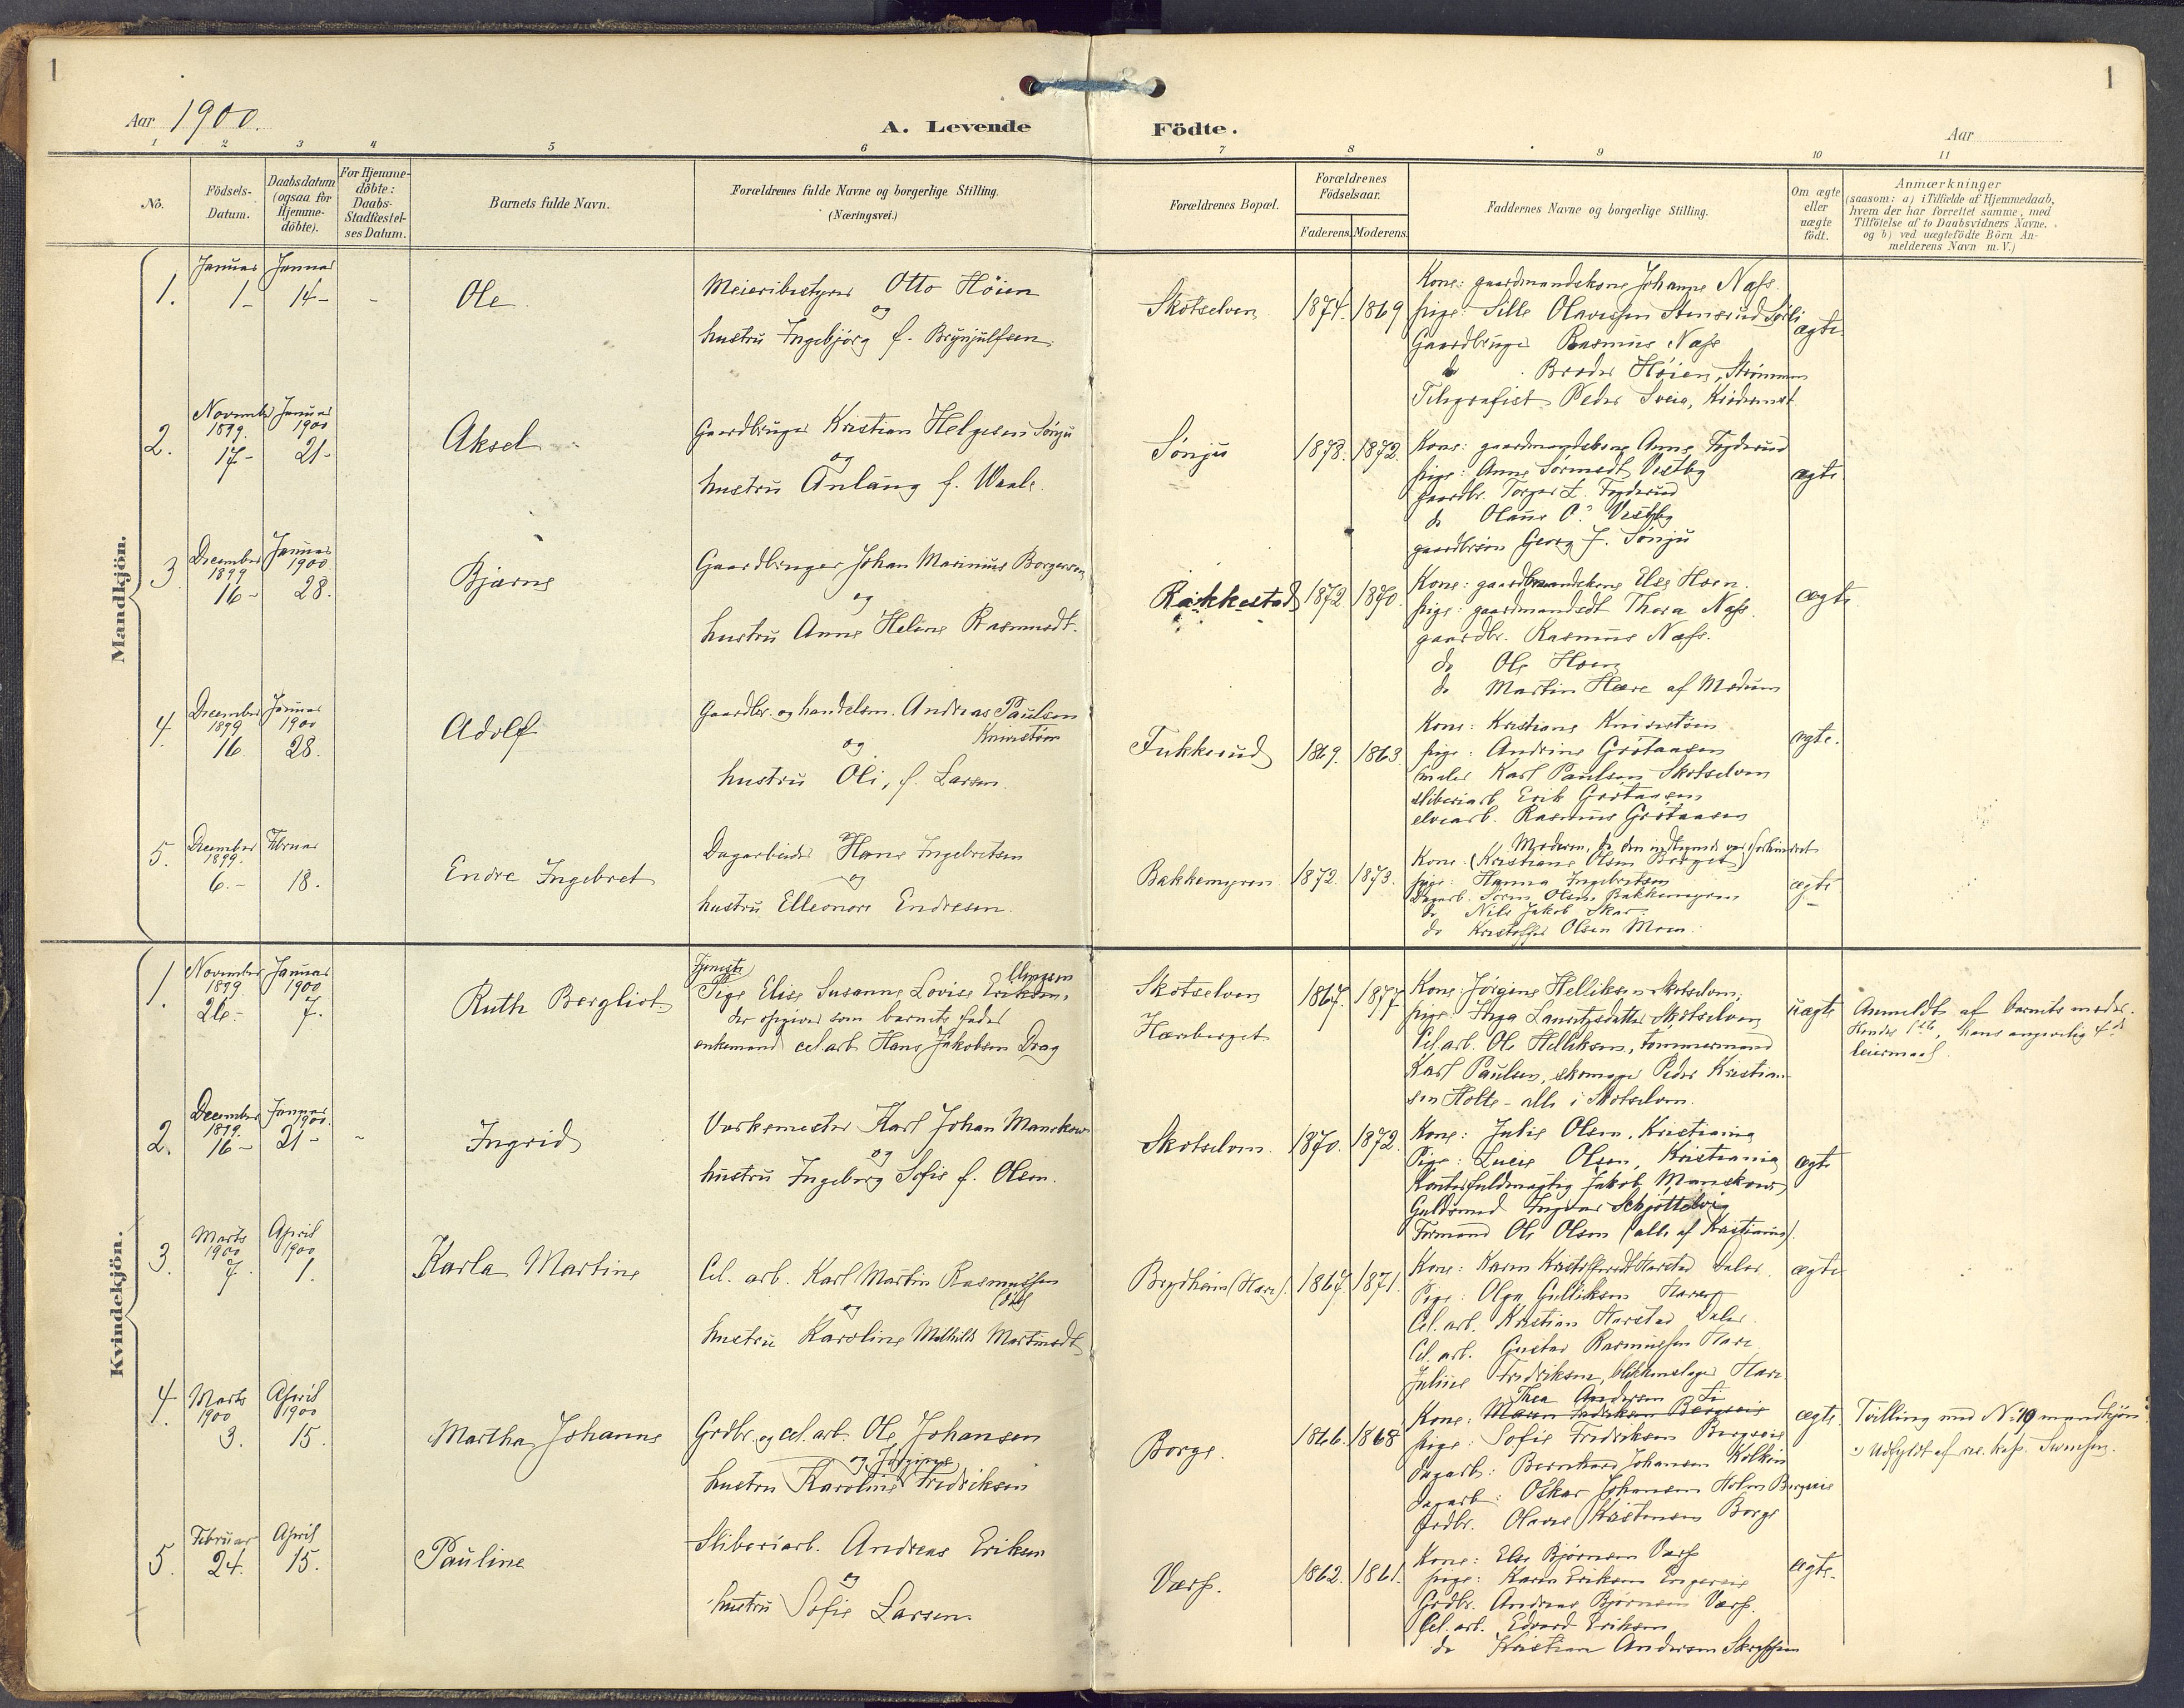 1
1
Aar 1900.
A. Levende
Födte.
Aar
1 2 3 4 5 6
7 8 9 10 11
No.
Födsels-Datum.
Daabsdatum (ogsaa for Hjemme-döbte).
For Hjemme-döbte: Daabs-Stadfæstel-ses Datum.
Barnets fulde Navn.
Forældrenes fulde Navne og borgerlige Stilling.
(Næringsvei.)
Forældrenes Bopæl.
Forældrenes Födselsaar.
Faderens. Moderens.
Faddernes Navne og borgerlige Stilling.
Om ægte eller uægte födt.
Anmærkninger
(saasom: a) i Tilfælde af Hjemmedaab,
hvem der har forrettet samme, med
Tilföielse af to Daabsvidners Navne.
og b) ved uægtefödte Börn An-
melderens Navn m.V.)
Mandkjön.
1.
Januar 1-
Januar 14-
-
Ole
Meieribestyrer Otto Höien
og
hustru Ingebjörg f. Brynjulfsen.
Skotselven
1874. 1869
Kone: gaardmandskone Johanne Næss.
pige: Sille Olavesen Stensrud
Gaardbruger Rasmus Næss
do Höien, Strömmen
Telegrafist Peder Sveia,
ægte
2.
November 1899. 17-
Januar 1900 21-
Aksel
Gaardbruger Kristian Helgesen Sönju
og
hustru Anlaug f. Waale.
Sönju
1873. 1872.
Kone: gaardmandskone Anne Foyderud
pige: Anne Vestby
gaardbr. Torger L. Foyderud
do Olaus O. Vestby
gaardbrsön Georg J. Sönju
ægte
3
December 1899 16-
Januar 1900. 28.
Bjarne
Gaardbruger Johan Marinius Borgersen
og
hustru Anne Heline Rasmusdt.
Rakkestad
1872. 1870.
Kone: gaardmandskone Else Hoen.
pige: gaardmandsdt Thora Næss.
gaardbr. Rasmus Næss.
do Ole Hoen
do Martin Hære af Modum
ægte
4.
December 1899 16.
Januar 1900 28.
Adolf
Gaardbr. og handelsm. Andreas Paulsen
og
hustru Oli, f. Larsen.
Fukkerud
1869. 1863.
Kone: Kristiane
pige: Andrine Grötaasen
maler Karl Paulsen Skotselven
sliberiarb. Erik Grötaasen
elvearb. Rasmus Grötaasen
ægte.
5.
December 1899. 6.-
Februar 18.
Endre Ingebret
Dagarbeider Hans Ingebretsen
og
hustru Elleonore Endresen.
Bakkemyren
1872. 1873.
Moderen, da den indtegnede var forhindret
Kone: (Kristiane Olsen Berget)
pige: Hanna Ingebretsen
Dagarb. Sören Olsen, Bakkemyren
do Nils Jakob Skar.
do Kristoffer Olsen Moen.
ægte
Kvindekjön.
1.
November 1899 26.-
Januar 1900 7.
Ruth Bergliot
Tjeneste
Pige Elise Susanne Lovise
der opgiver som barnets fader
enkemand cel.arb. Hans Jakobsen Drag
Skotselven
1867. 1877.
Kone: Jörgine Helliksen Skotselven,
pige: Inga Lauritzdatter Skotselven
Cel.arb. Ole Helliksen, tömmermand
Karl Paulsen, skomager Peder Kristian-
sen Holte - alle i Skotselven.
uægte
Anmeldt af barnets moder.
Hendes 1ste, hans angivelig 4de
leiermaal.
2.
December 1899. 16-
Januar 1900. 21-
-
Ingrid
Verksmester Karl Johan Manskow
og
hustru Ingeborg Sofie f. Olsen.
Skotselven.
1870. 1872.
Kone: Julie Olsen, Kristiania
Pige: Lucie Olsen, Kristiania
Kontorfuldmægtig Jakob Manskow,
Guldsmed Ingvar Schjöttelvig
Formand Ole Olsen (alle af Kristiania).
ægte
3.
Marts 1900 7.
April 1900 1.
Karla Martine
Cel. arb. Karl Martin Rasmussen
og
hustru Karoline Mathilde Martinsdt
Brydheim (Hære).
1867. 1871.
Kone: Karen Kristoffersdt Harstad Daler.
Pige: Olga Gulliksen Hære
Cel.arb. Kristian Harstad Daler
Cel. arb. Gustav Rasmussen Hære
Julius Fredriksen, blikkenslager Hære
ægte
4.
Marts 1900 3.
April 1900 15.
Martha Johanne
Grdbr. og cel.arb. Ole Johansen
og Jörgine
hustru Karoline Fredriksen
Borge.
1866. 1868
Thea Andersen
Kone: Maren Fredriksen Bergseie
pige: Sofie Fredriksen Bergseie
dagarb: Bernhard Johansen Kolkin
dagarb: Oskar Johansen Holm Bergseie
Grdbr. Olaves Kristensen Borge
ægte.
Tvilling med No 10 mandkjön.
Udfyldt af res. kap. Svendsen.
5.
Februar 24.
April 15.
Pauline
Sliberiarb. Andreas Eriksen
og
hustru Sofie Larsen.
Værp.
1862. 1861.
Kone: Else Björnsen Værp
pige: Karen Eriksen
Grdbr. Andreas Björnsen Værp.
Cel. arb. Edvard Eriksen
do Kristian Andersen
ægte.